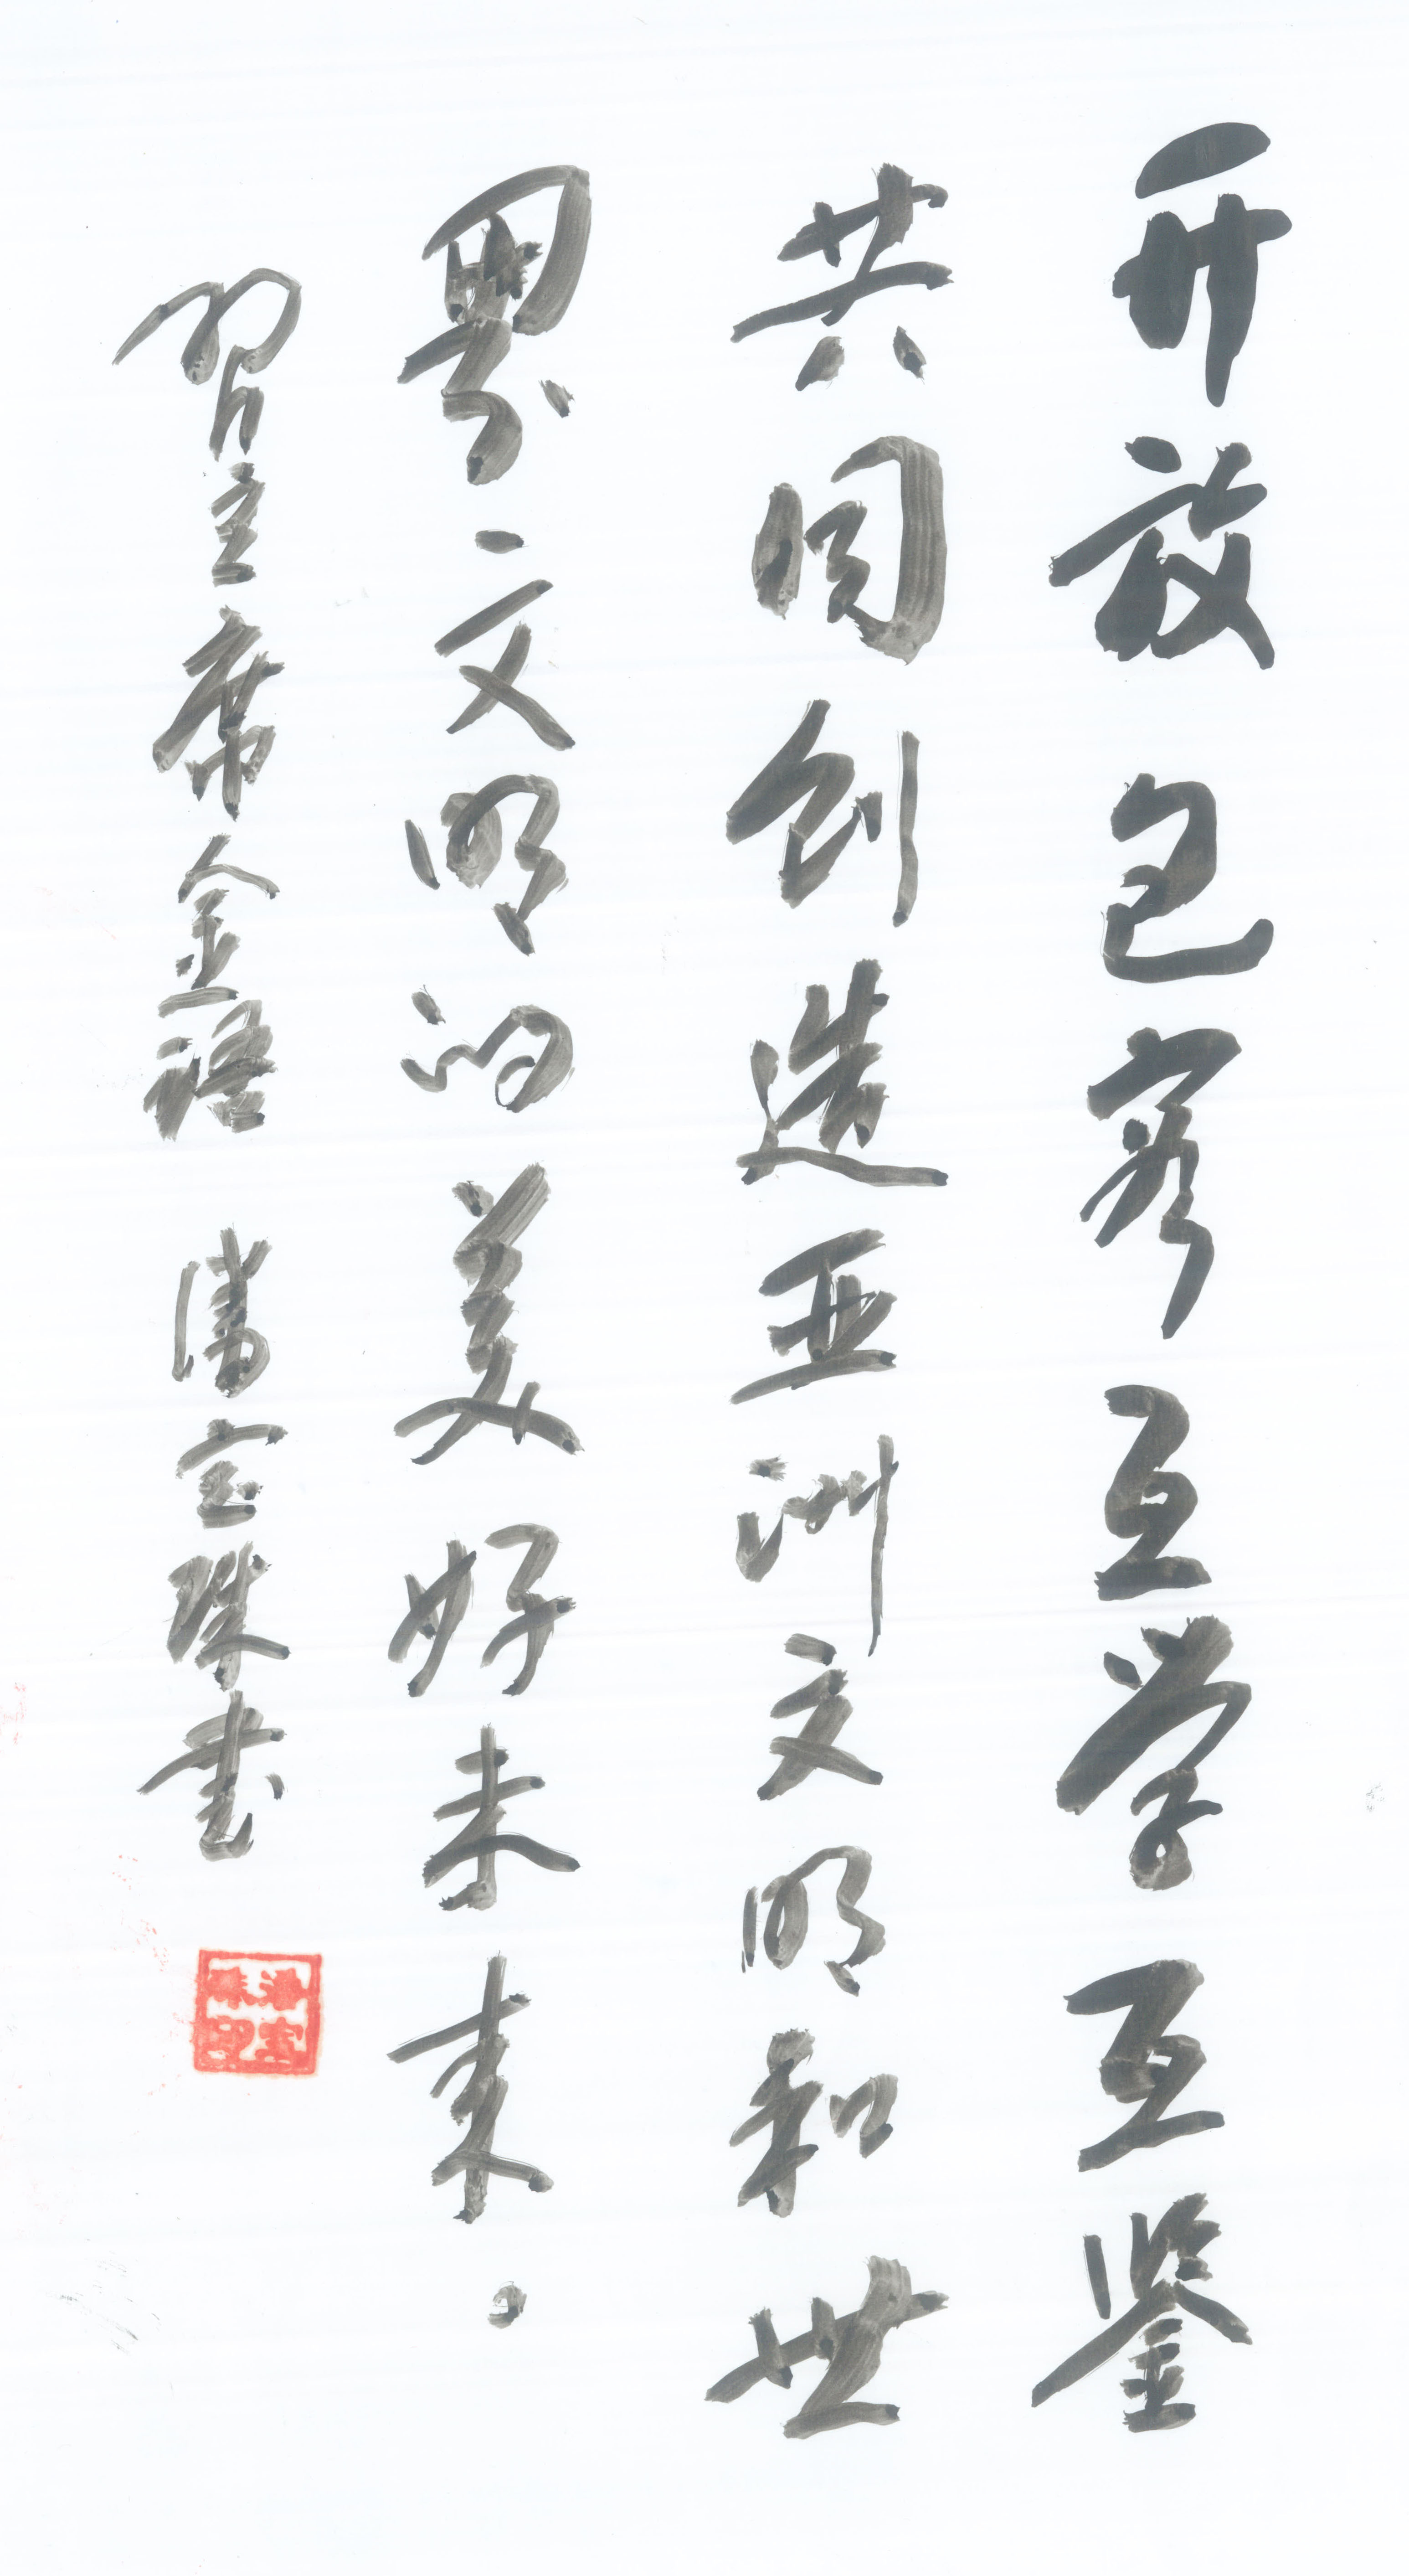 开放包容互学互鉴
共同创造亚洲文明和世
界文明的美好未来。
習主席金語 潘宝珠书